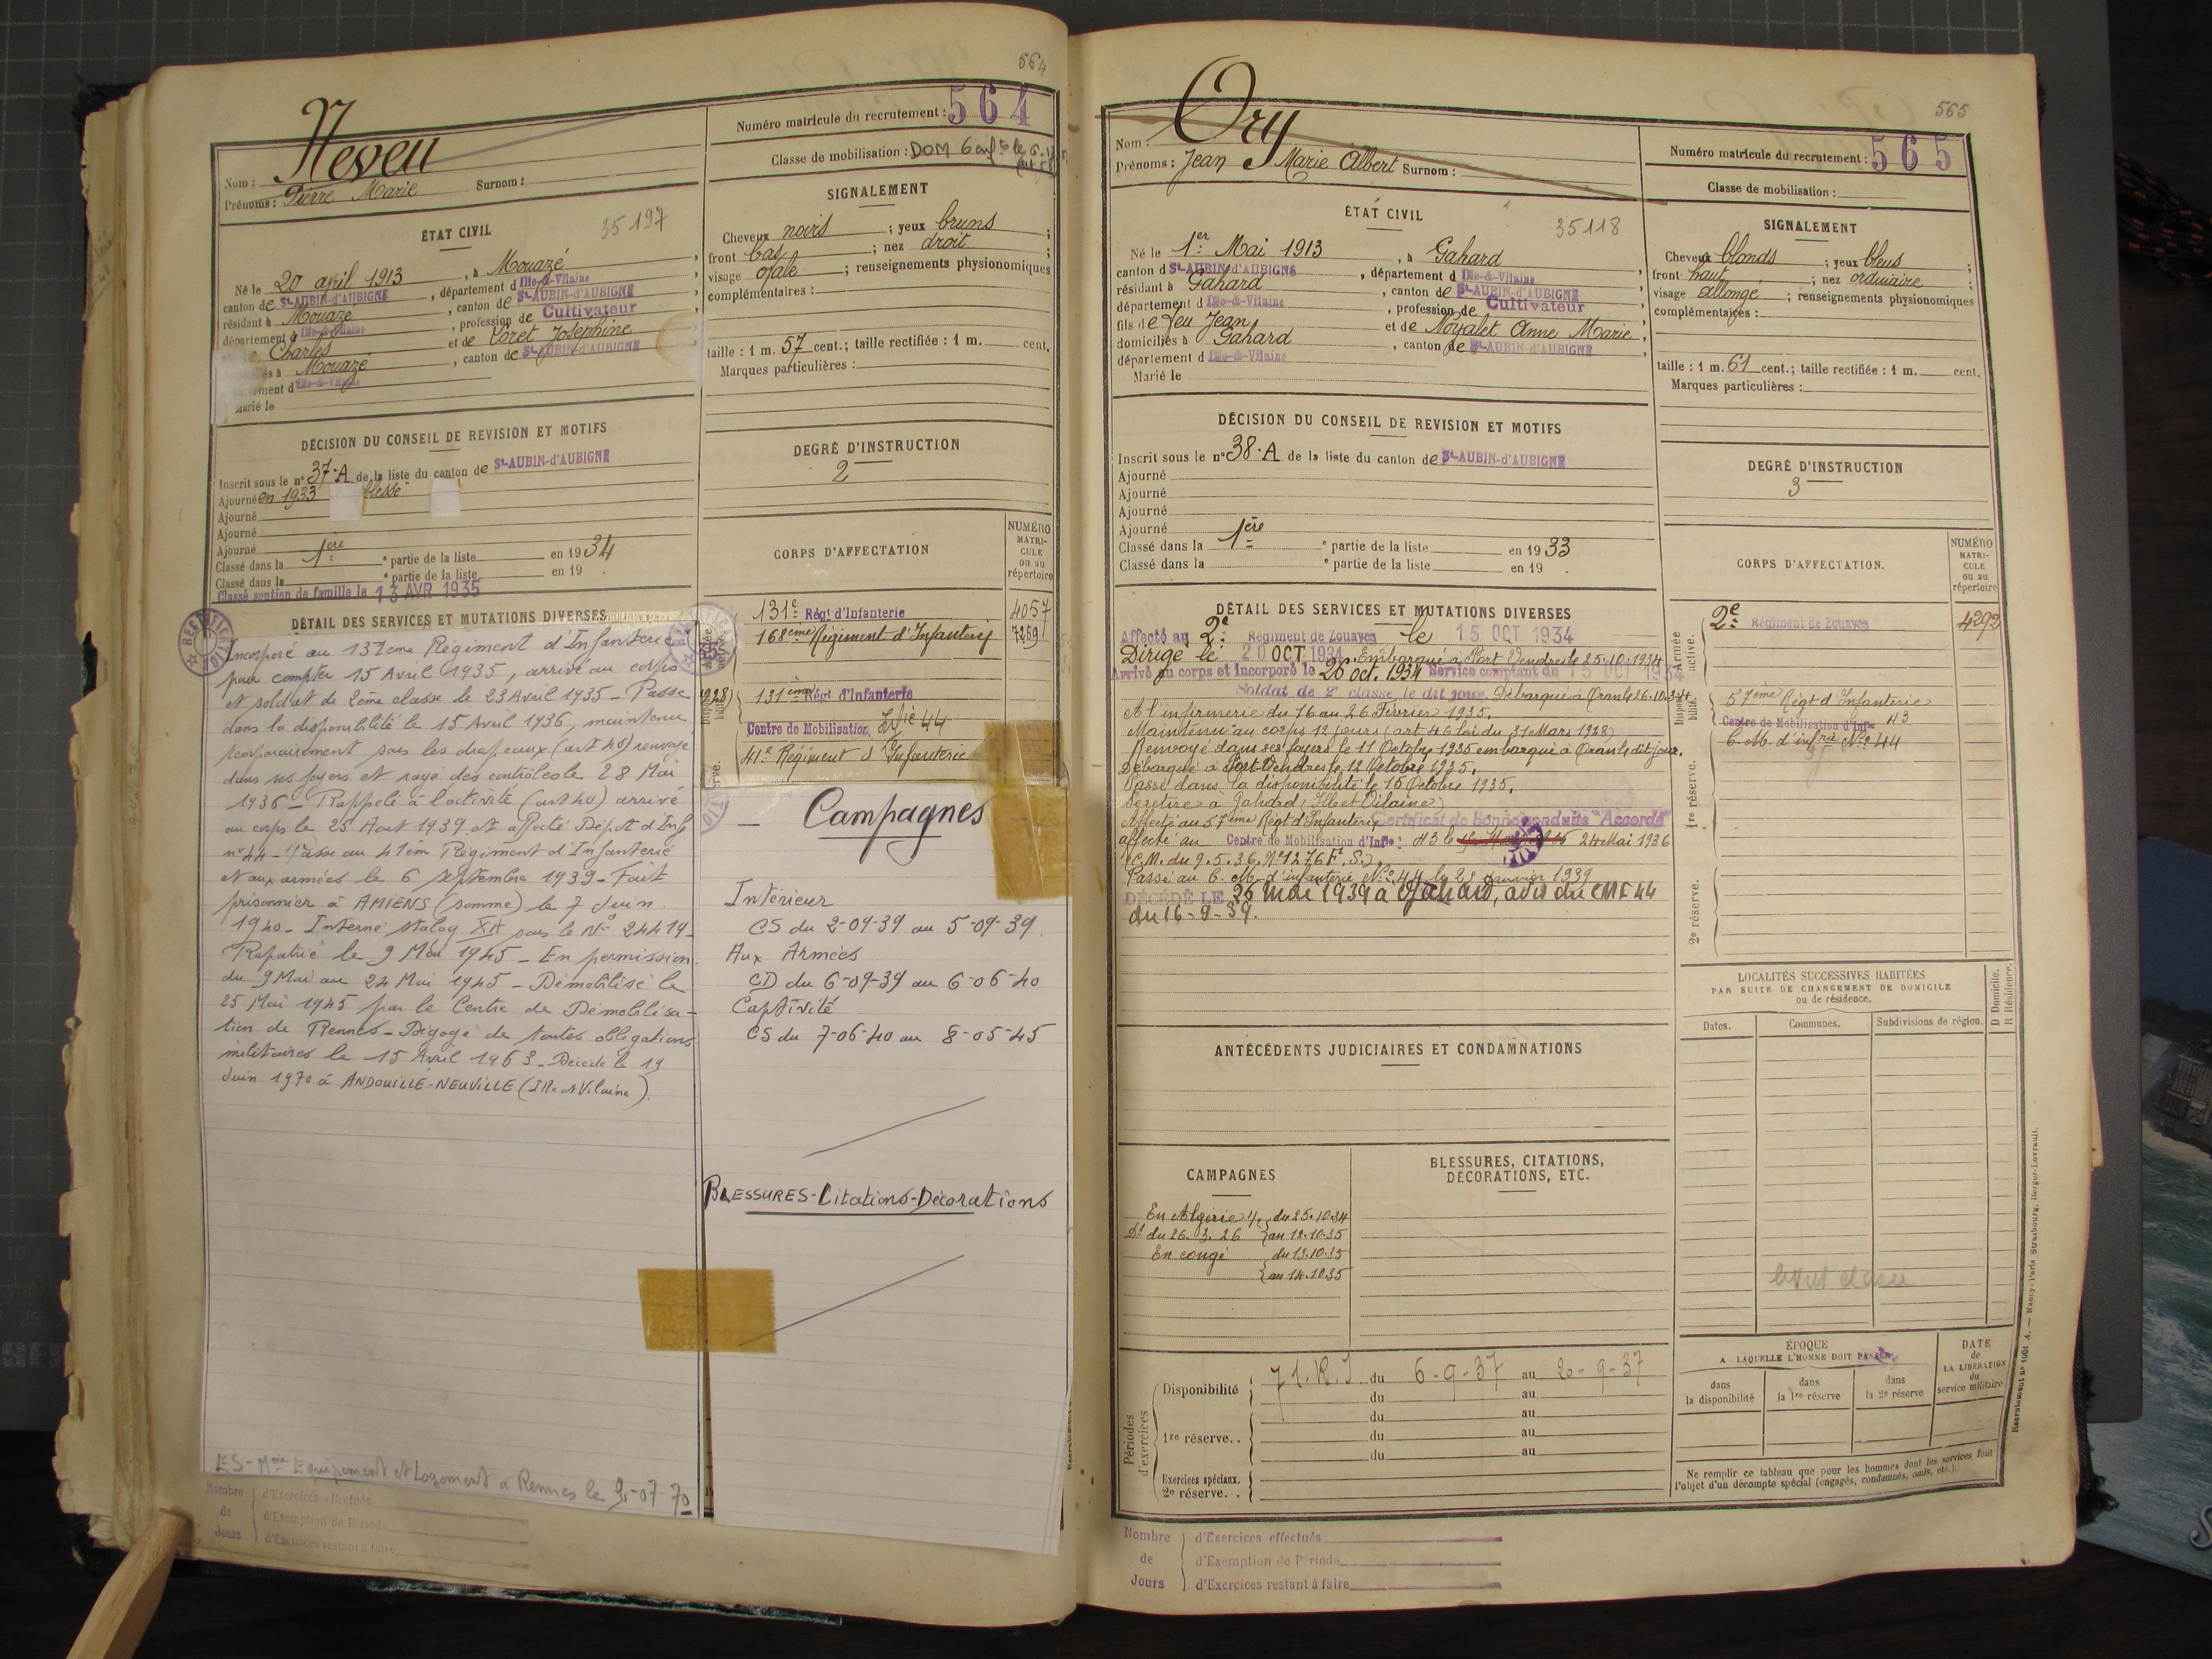 564
Neveu
Nom :
Prénoms : Pierre Marie Surnom :
Numéro matricule du recrutement : 564
Classe de mobilisation : DOM 6 enfts le 6
ÉTAT CIVIL
35197
Né le 20 avril 1913, à Mouazé
canton de St-AUBIN-d'AUBIGNÉ, département d Ille-&-Vilaine
résidant à Mouazé, canton de St-AUBIN-d'AUBIGNÉ
département d Ille-&-Vilaine, profession de Cultivateur
Charles et de Coret Joséphine
à Mouazé, canton de St-AUBIN-d'AUBIGNÉ
d Ille-&-Vilaine
Marié le
SIGNALEMENT
Cheveux noirs ; yeux bruns ;
front bas ; nez droit ;
visage ovale ; renseignements physionomiques
complémentaires :
taille : 1 m. 57 cent. ; taille rectifiée : 1 m. cent.
Marques particulières :
DÉCISION DU CONSEIL DE REVISION ET MOTIFS
Inscrit sous le n° 37-A de la liste du canton de St-AUBIN-d'AUBIGNÉ
Ajourné en 1933
Ajourné
Ajourné
Ajourné
Classé dans la 1ère partie de la liste en 1934
Classé dans la partie de la liste en 19
Classé soutien de famille le 13 AVR 1935
DEGRÉ D'INSTRUCTION
2
CORPS D'AFFECTATION
NUMÉRO MATRI-CULE ou au répertoire
131e Régt d'Infanterie 4057
168ème Régiment d'Infanterie 7259
131ème Régt d'Infanterie
Centre de Mobilisation Infie 44
41e Régiment d'Infanterie
DÉTAIL DES SERVICES ET MUTATIONS DIVERSES
Incorporé au 131ème Régiment d'Infanterie
pour compter 15 Avril 1935, arrivé au corps
et soldat de 2ème classe le 23 Avril 1935 - Passé
dans la disponibilité le 15 Avril 1936, maintenu
temporairement sous les drapeaux (art 40) renvoyé
dans ses foyers et rayé des contrôles le 28 Mai
1936 - Rappelé à l'activité (art 40) arrivé
au corps le 25 Aout 1939 et affecté Dépot d'Inf
n° 44 - Passe au 41èm Régiment d'Infanterie
et aux armées le 6 septembre 1939 - Fait
prisonnier à AMIENS (somme) le 7 Juin
1940 - Interné stalag XIA sous le N° 24419 -
Rapatrié le 9 Mai 1945 - En permission
du 9 Mai au 24 Mai 1945 - Démobilisé le
25 Mai 1945 par le Centre de Démobilisa-
tion de Rennes - Dégagé de toutes obligations
militaires le 15 Avril 1963 - Décédé le 19
Juin 1970 à ANDOUILLÉ-NEUVILLE (Ille et Vilaine).
Campagnes
Intérieur
CS du 2-09-39 au 5-09-39
Aux Armées
CD du 6-09-39 au 6-06-40
Captivité
CS du 7-06-40 au 8-05-45
BLESSURES-Citations-Décorations
ES - Mère Equipement et Logement à Rennes le 9-07-70
Nombre de Jours
d'Exercices effectués
d'Exemption de Période
d'Exercices restant à faire
565
Ory
Nom :
Prénoms : Jean Marie Albert Surnom :
Numéro matricule du recrutement : 565
Classe de mobilisation :
ÉTAT CIVIL
35118
Né le 1er Mai 1913, à Gahard
canton d St-AUBIN-d'AUBIGNÉ, département d Ille-&-Vilaine
résidant à Gahard, canton de St-AUBIN-d'AUBIGNÉ
département d Ille-&-Vilaine, profession de Cultivateur
fils de feu Jean et de Noyalet Anne Marie
domiciliés à Gahard, canton de St-AUBIN-d'AUBIGNÉ
département d Ille-&-Vilaine
Marié le
SIGNALEMENT
Cheveux blonds ; yeux bleus ;
front haut ; nez ordinaire ;
visage allongé ; renseignements physionomiques
complémentaires :
taille : 1 m. 61 cent. ; taille rectifiée : 1 m. cent.
Marques particulières :
DÉCISION DU CONSEIL DE REVISION ET MOTIFS
Inscrit sous le n° 38-A de la liste du canton de St-AUBIN-d'AUBIGNÉ
Ajourné
Ajourné
Ajourné
Ajourné
Classé dans la 1ère partie de la liste en 1933
Classé dans la partie de la liste en 19
DEGRÉ D'INSTRUCTION
3
CORPS D'AFFECTATION.
NUMÉRO MATRI-CULE ou au répertoire
Armée active.
2e Régiment de Zouaves 4292
Disponibilité.
57ème Régt d'Infanterie
Centre de Mobilisation d'Infie 43
C.M. d'infrie N° 44
1re réserve.
2e réserve.
DÉTAIL DES SERVICES ET MUTATIONS DIVERSES
Affecté au 2e Régiment de Zouaves le 15 OCT 1934
Dirigé le 20 OCT 1934 Embarqué à Port Vendres le 25.10.1934
Arrivé au corps et incorporé le 26 oct. 1934 Service comptant du 15 OCT 1934
Soldat de 2e classe le dit jour. Débarqué à Oran le 26.10.34
A l'infirmerie du 16 au 26 Février 1935.
Maintenu au corps 12 jours (art 46 loi du 31 Mars 1928)
Renvoyé dans ses foyers le 11 Octobre 1935 embarqué à Oran le dit jour.
Débarqué à Port Vendres le 12 Octobre 1935.
Passé dans la disponibilité le 15 Octobre 1935.
Se retire à Gahard (Ille et Vilaine)
Affecté au 57ème Régt d'Infanterie Certificat de bonne conduite "Accordé"
affecté au Centre de Mobilisation d'Infie 43 le 24 Mai 1936
(C.M. du 9.5.36, N° 1276 F.S.).
Passé au C.M. d'infanterie N° 44 le 21 Janvier 1939
DÉCÉDÉ LE 26 mai 1939 à Gahard, avis du CMI 44
du 16-9-39.
ANTÉCÉDENTS JUDICIAIRES ET CONDAMNATIONS
LOCALITÉS SUCCESSIVES HABITÉES
PAR SUITE DE CHANGEMENT DE DOMICILE
ou de résidence.
Dates. Communes. Subdivisions de région. D Domicile. R Résidence.
CAMPAGNES
BLESSURES, CITATIONS, DÉCORATIONS, ETC.
En Algérie du 25.10.34
Dt du 26.3.26 au 12.10.35
En congé du 13.10.35
au 14.10.35
Périodes d'exercices
Disponibilité 71.R.I du 6-9-37 au 26-9-37
du au
du au
1re réserve.. du au
du au
Exercices spéciaux.
2e réserve. .
ÉPOQUE
A LAQUELLE L'HOMME DOIT PASSER
dans la disponibilité
dans la 1re réserve
dans la 2e réserve
DATE de LA LIBÉRATION du service militaire
Ne remplir ce tableau que pour les hommes dont les services font
l'objet d'un décompte spécial (engagés, condamnés, omis, etc.).
Recrutement n° 1001 A. — Nancy-Paris Strasbourg, Berger-Levrault.
Nombre de Jours
d'Exercices effectués
d'Exemption de Période
d'Exercices restant à faire